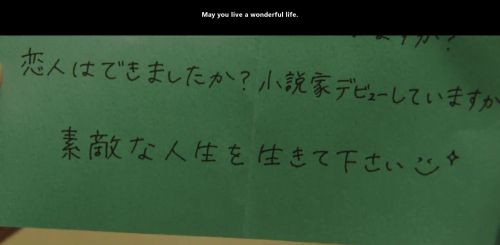 May you live a wonderful life.
ますか?
恋人はできましたか? 小説家デビューしていますか
素敵な人生を生きて下さい